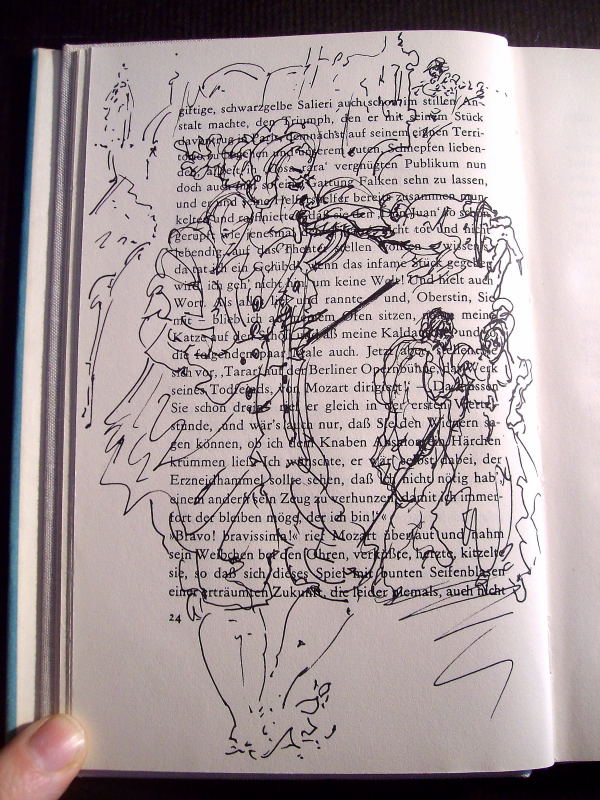 giftige, schwarzgelbe Salieri auch schon im stillen An-
stalt machte, den Triumph, den er mit seinem Stück
davontrug in Paris, demnächst auf seinem eignen Terri-
torio zu und unserem guten, Schnepfen lieben-
den, allzeit in ‚Cosa rara‘ vergnügten Publikum nun
doch auch mal so eine Gattung Falken sehn zu lassen,
und er und seine Helfershelfer bereits zusammen mun-
kelten und raffinierten, daß sie den ‚Don Juan‘ so schön
gerupft wie jenesmal nicht tot und nicht
lebendig, auf das Theater stellen wollten – wissen
da tat ich ein Gelübd’, wenn das infame Stück gegeben
wird, ich geh’ nicht hin, um keine Welt! Und hielt auch
Wort. Als alles lief und rannte – und, Oberstin, Sie
mit – blieb ich an meinem Ofen sitzen, meine
Katze auf dem Schoß, und aß meine Kaldaune; und
die folgenden paar Male auch. Jetzt aber, stellen Sie
sich vor, ‚Tarar‘ auf der Berliner Opernbühne, das Werk
seines Todfeinds, von Mozart dirigiert! – Da müssen
Sie schon drein! rief er gleich in der ersten Viertel-
stunde, und wär’s auch nur, daß Sie den Wienern sa-
gen können, ob ich dem Knaben Absalom ein Härchen
krümmen ließ. Ich wünschte, er wär’ selbst dabei, der
Erzneidhammel sollte sehen, daß ich nicht nötig hab’,
einem andern sein Zeug zu verhunzen, damit ich immer-
fort der bleiben möge, der ich bin!‘«
»Bravo! bravissima!« rief Mozart überlaut und nahm
sein Weibchen bei den Ohren, verküßte, herzte, kitzelte
sie, so daß sich dieses Spiel mit bunten Seifenblasen
einer erträumten Zukunft, die leider niemals, auch nicht
24